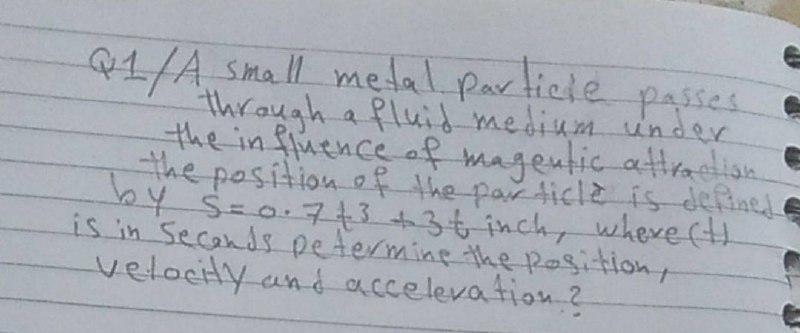 Q1/A small metal particle passes
through a fluid medium under
the influence of magentic attraction
the position of the particle is defined
by S=0.7t³ +3t inch, where (t)
is in seconds Determine the position,
velocity and acceleration?